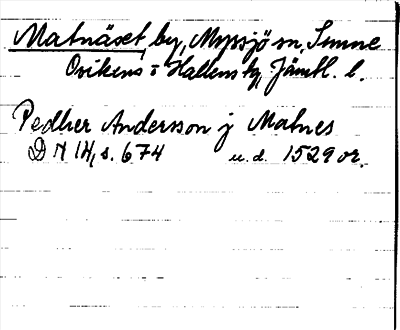 Matnäset, by, Myssjö sn, Sunne
Ovikens o Hallens tg, Jämtl. l.
Pedher Andersson j Matnes
DN 14, s. 674 u. d. 1529 or.